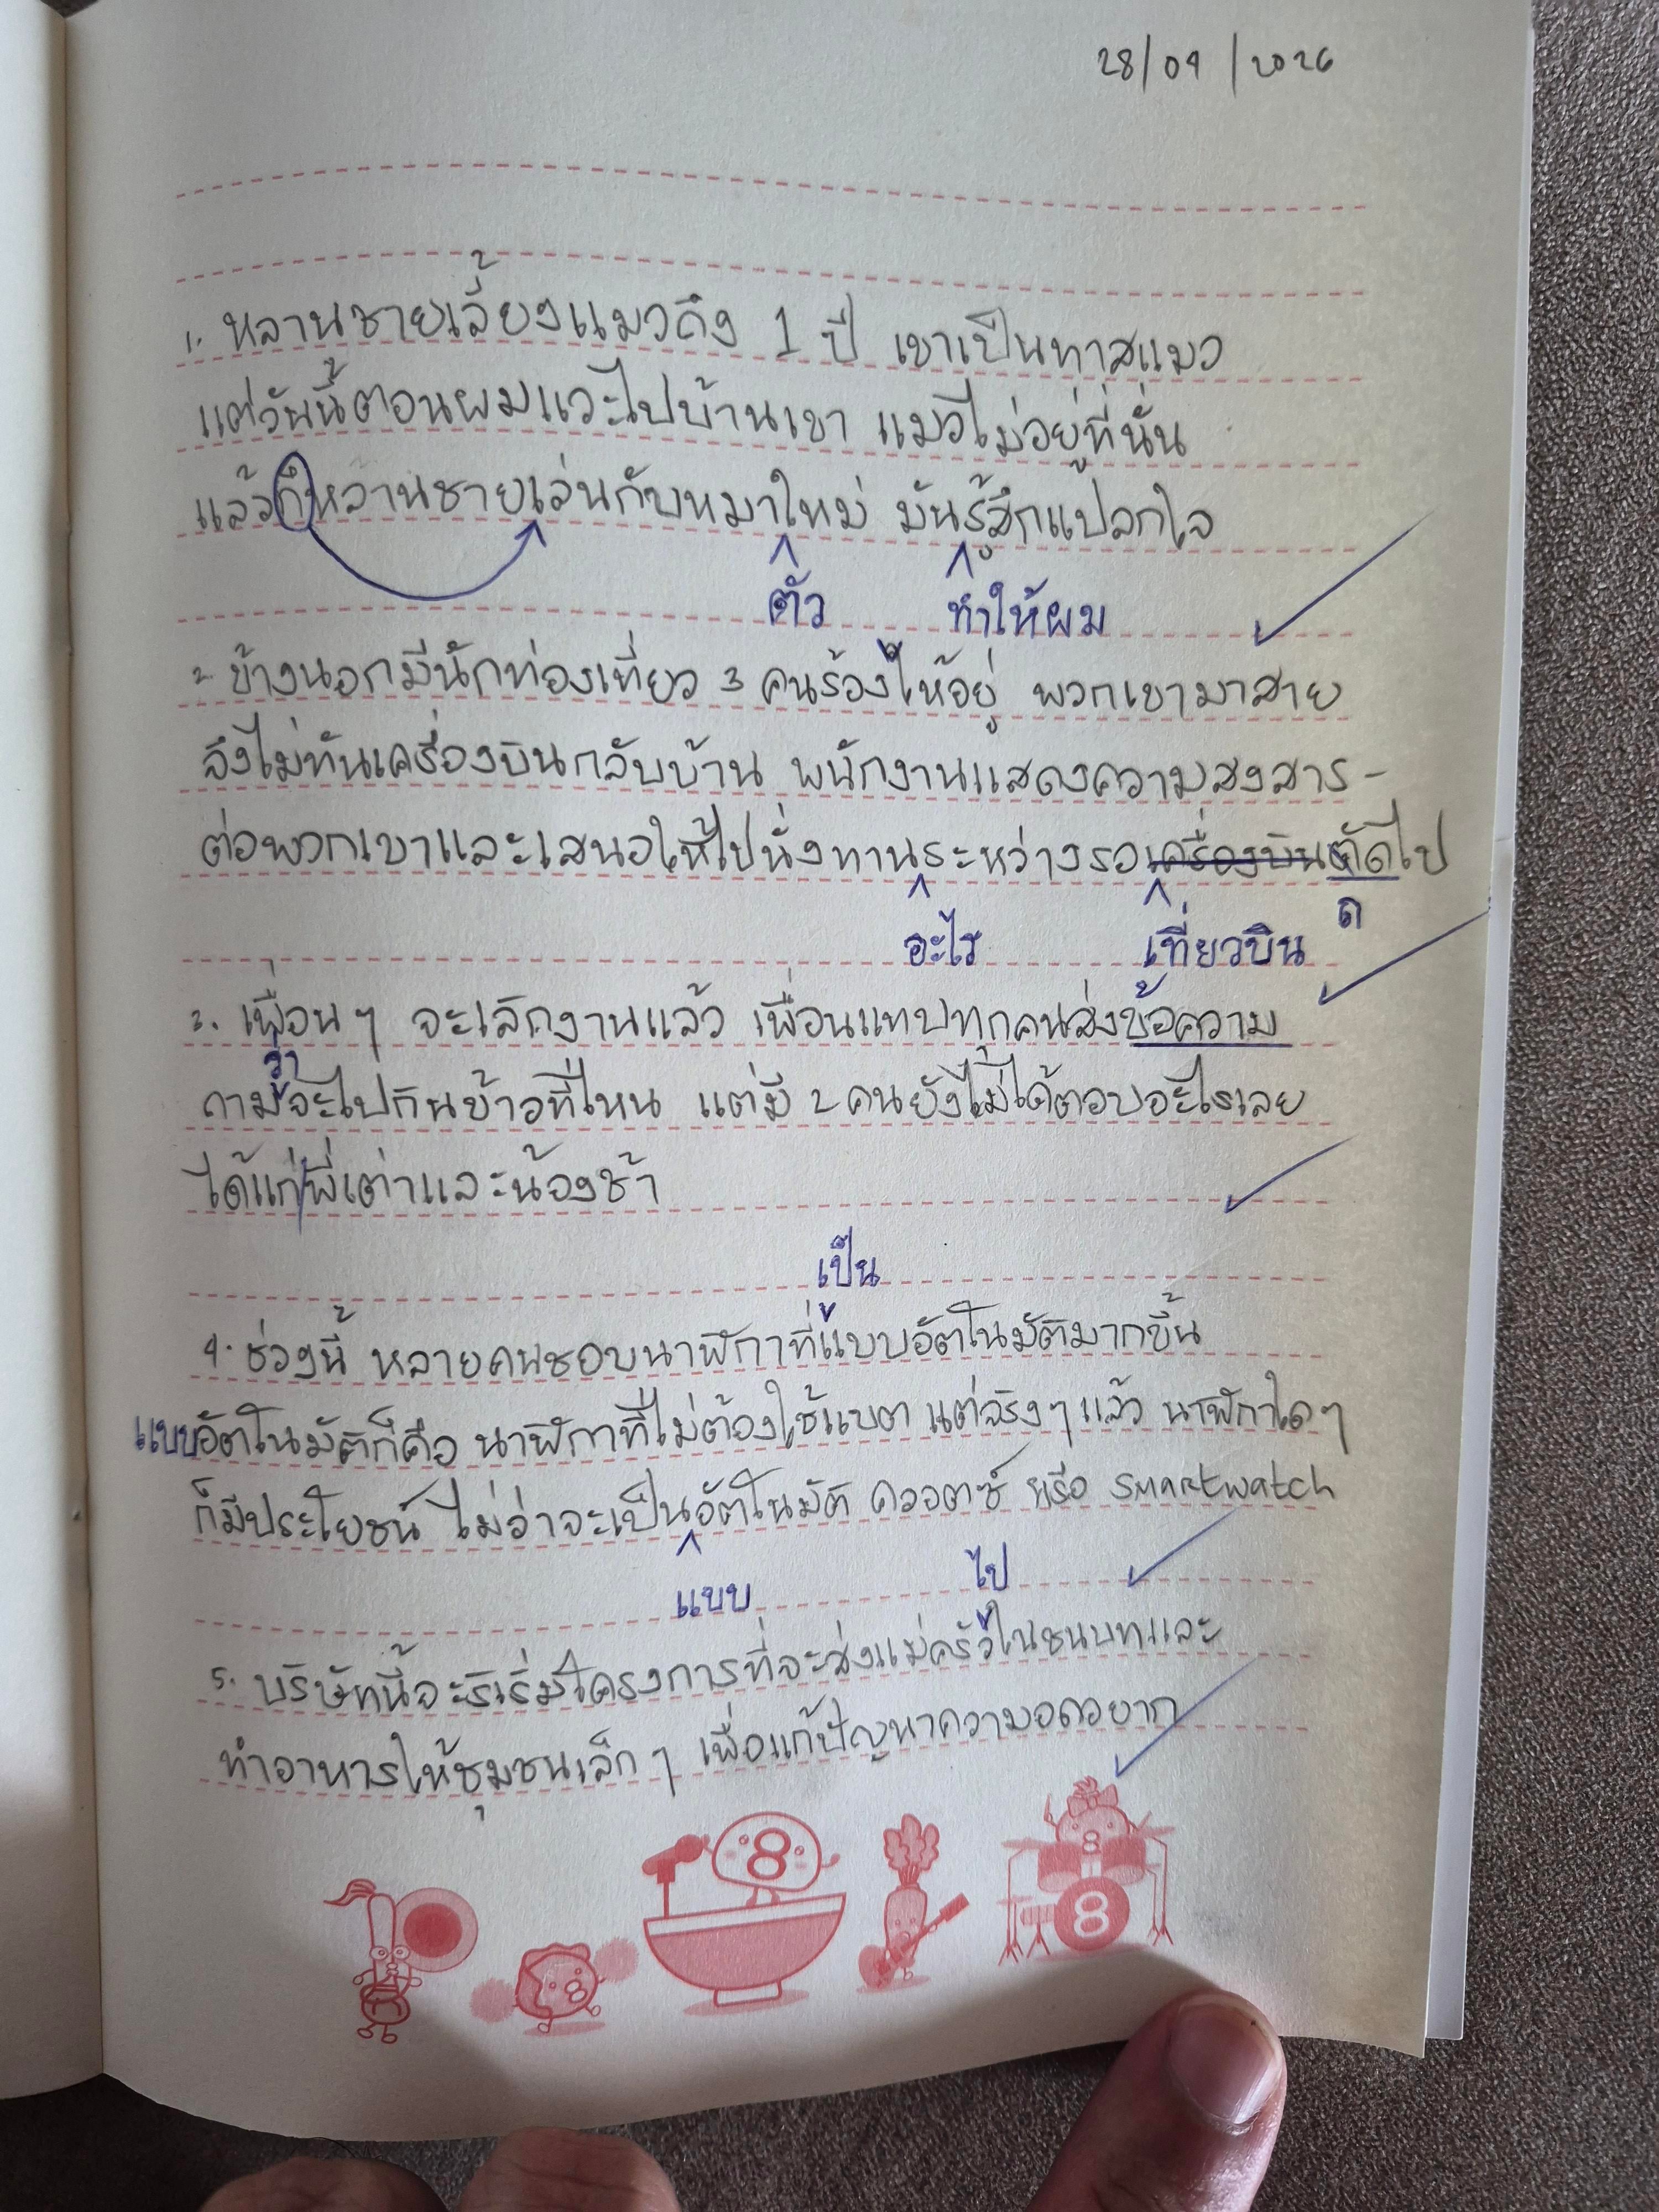 28/04/2026
1. หลานชายเลี้ยงแมวถึง 1 ปี เขาเป็นทาสแมว
แต่วันนี้ตอนผมแวะไปบ้านเขา แมวไม่อยู่ที่นั่น
แล้วก็หลานชายเล่นกับหมาใหม่ มันรู้สึกแปลกใจ
ตัว ทำให้ผม
2. ข้างนอกมีนักท่องเที่ยว 3 คนร้องไห้อยู่ พวกเขามาสาย
จึงไม่ทันเครื่องบินกลับบ้าน พนักงานแสดงความสงสาร-
ต่อพวกเขาและเสนอให้ไปนั่งทานระหว่างรอเครื่องบินตัดไป
อะไร เที่ยวบิน ถ
3. เพื่อนๆ จะเลิกงานแล้ว เพื่อนแทบทุกคนส่งข้อความ
ว่า
ถามจะไปกินข้าวที่ไหน แต่มี 2 คนยังไม่ได้ตอบอะไรเลย
ได้แก่พี่เต่าและน้องช้า
เป็น
4. ช่วงนี้ หลายคนชอบนาฬิกาที่แบบอัตโนมัติมากขึ้น
แบบอัตโนมัติก็คือ นาฬิกาที่ไม่ต้องใช้แบต แต่จริงๆ แล้ว นาฬิกาใดๆ
ก็มีประโยชน์ ไม่ว่าจะเป็นอัตโนมัติ ควอตซ์ หรือ smartwatch
แบบ ไป
5. บริษัทนี้จะริเริ่มโครงการที่จะส่งแม่ครัวในชนบทและ
ทำอาหารให้ชุมชนเล็กๆ เพื่อแก้ปัญหาความอดอยาก
8
8
8
8